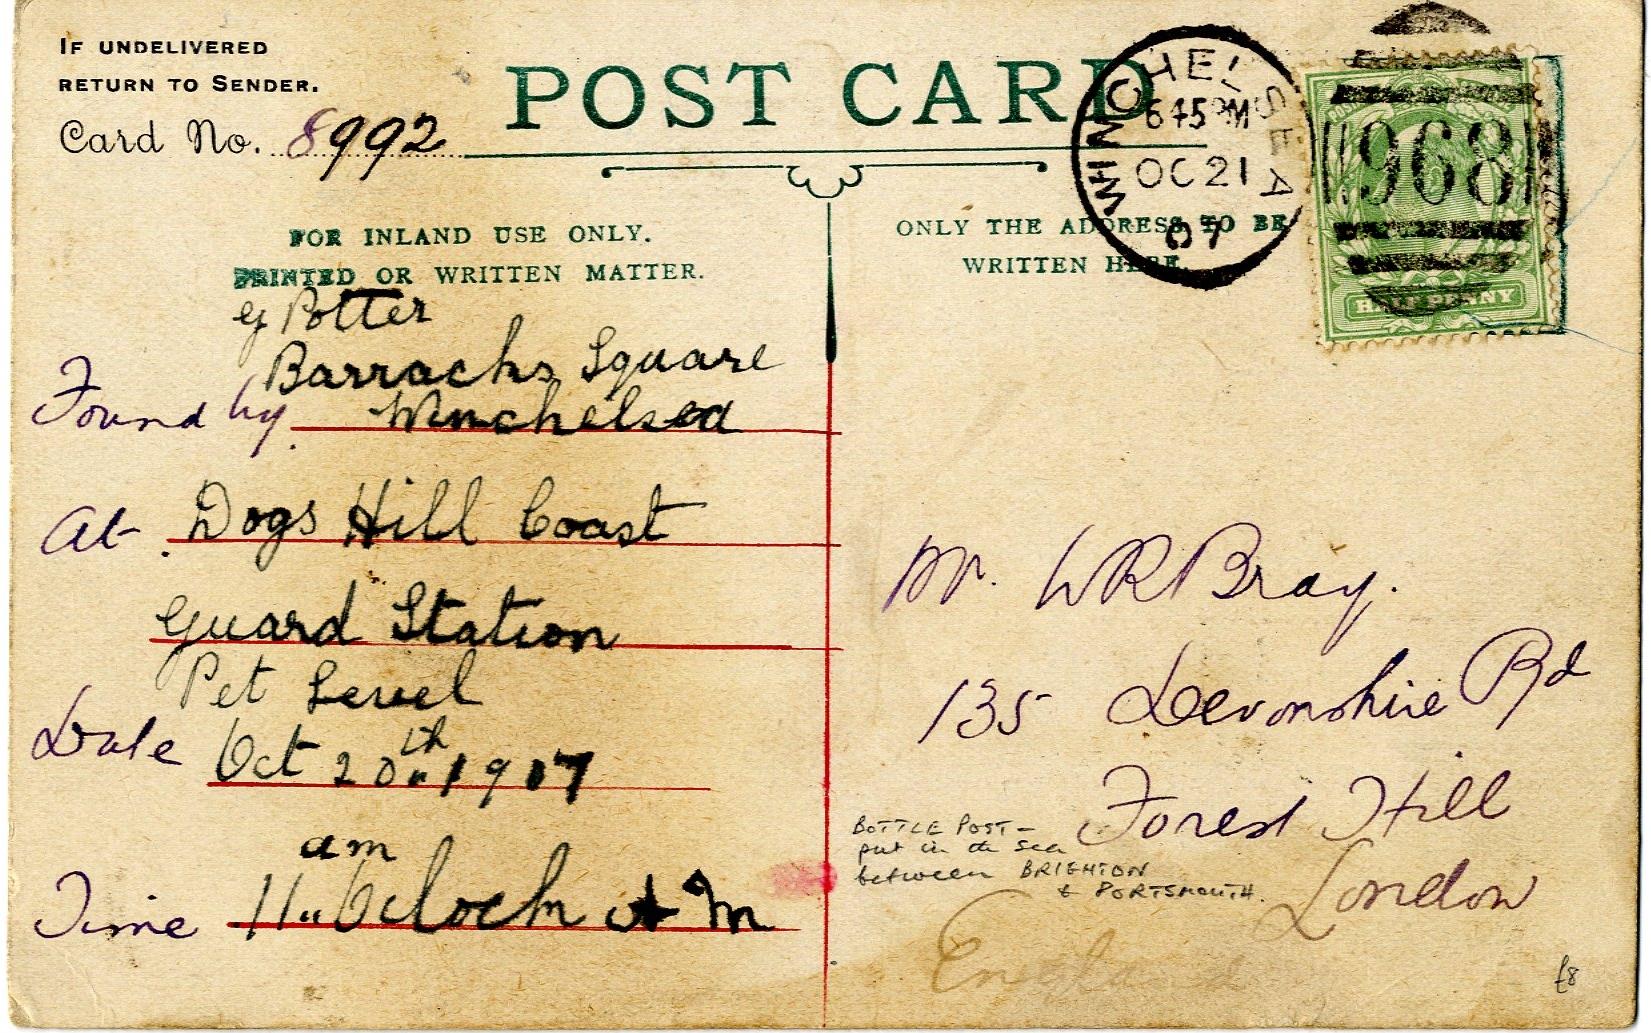 IF UNDELIVERED
RETURN TO SENDER.
Card No. 8992
POST CARD
WINCHELSEA
645PM
OC 21
07
968
HALF PENNY
FOR INLAND USE ONLY.
PRINTED OR WRITTEN MATTER.
ONLY THE ADDRESS TO BE
WRITTEN HERE.
G Potter
Barracks Square
Found by Winchelsea
At Dogs Hill Coast
Guard Station
Pet Level
Date Oct 20th 1907
am
Time 11 "OClock A M
Mr. W R Bray.
135 Devonshire Rd
Forest Hill
London
England
BOTTLE POST -
put in the sea
between BRIGHTON
& PORTSMOUTH.
£8